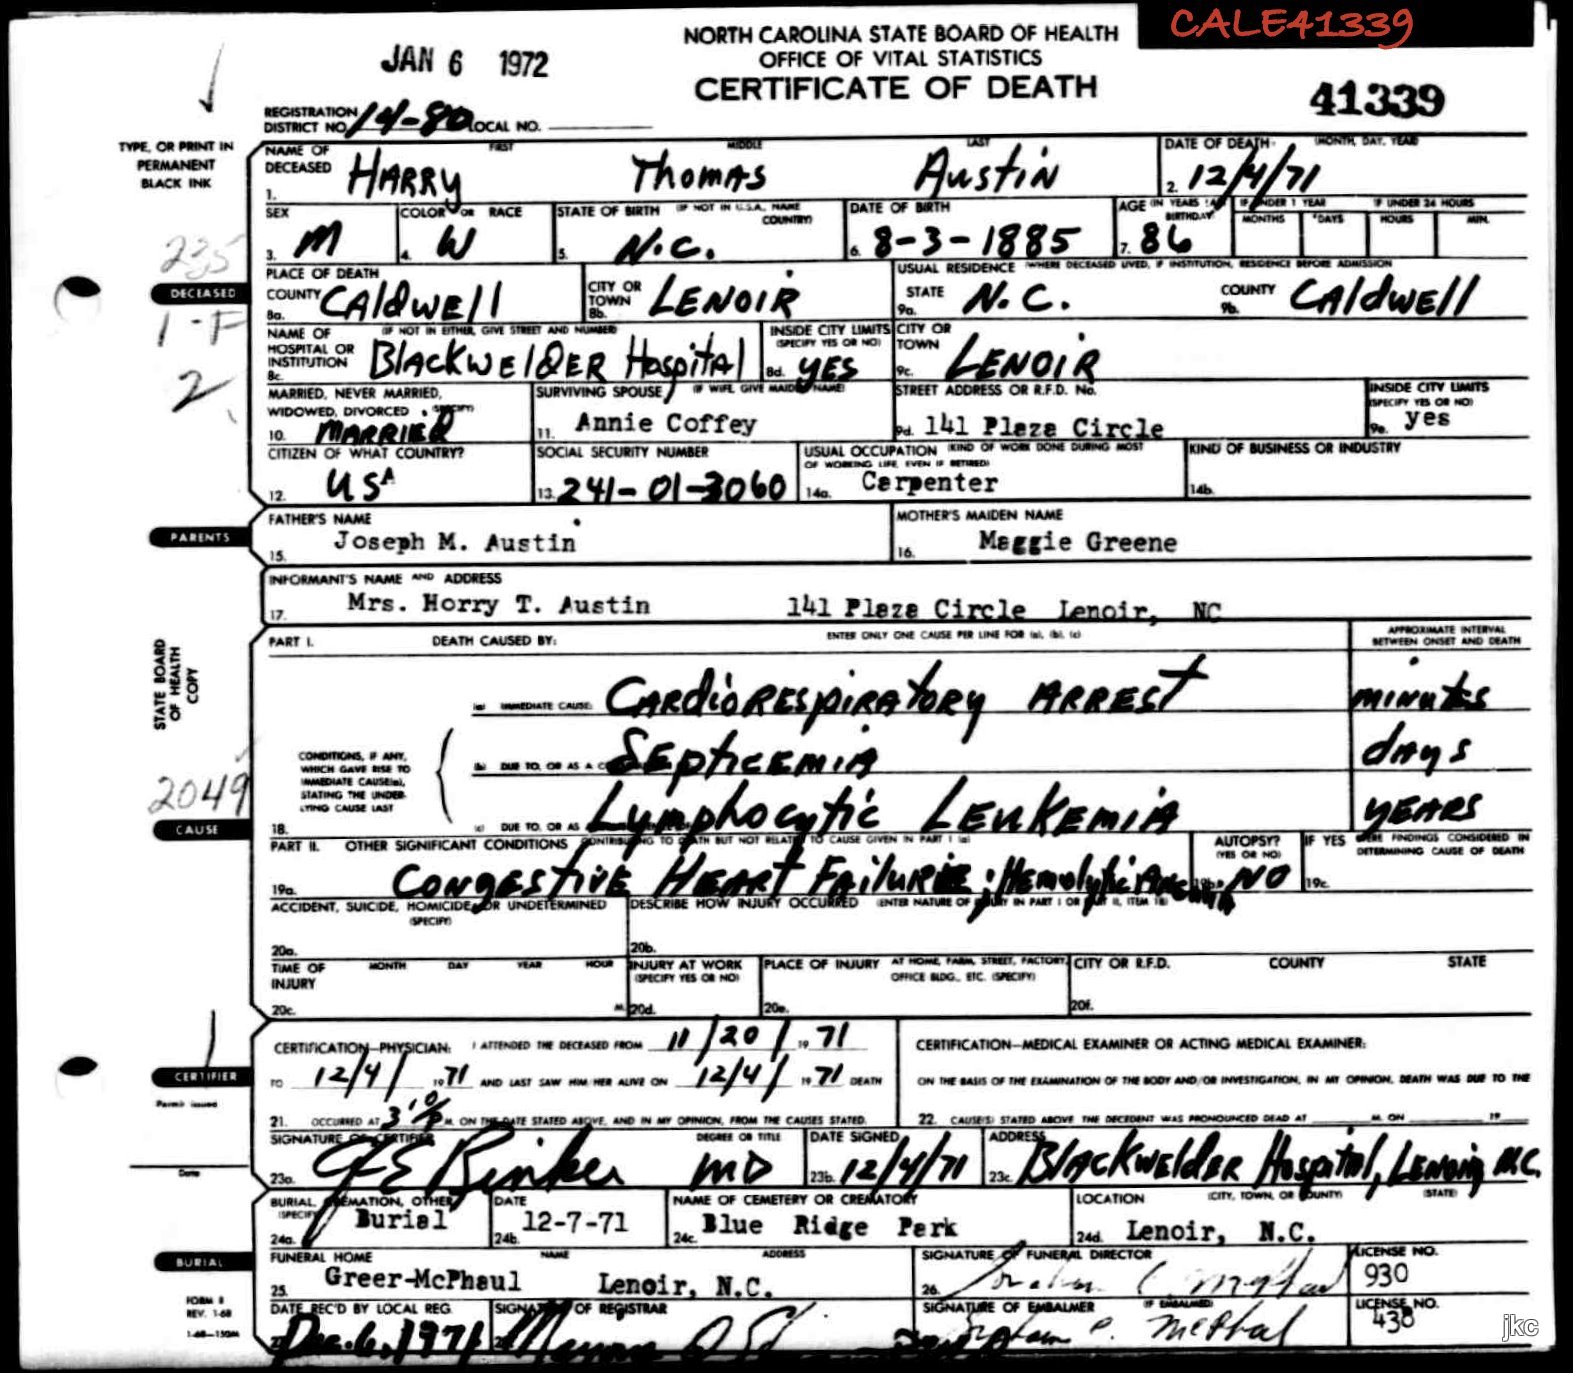 CALE41339
NORTH CAROLINA STATE BOARD OF HEALTH
JAN 6 1972
OFFICE OF VITAL STATISTICS
CERTIFICATE OF DEATH
41339
REGISTRATION DISTRICT NO. 14-80 LOCAL NO.
TYPE, OR PRINT IN PERMANENT BLACK INK
NAME OF DECEASED FIRST MIDDLE LAST DATE OF DEATH (MONTH, DAY, YEAR)
1. HARRY Thomas Austin 2. 12/4/71
SEX COLOR OR RACE STATE OF BIRTH (IF NOT IN U.S.A., NAME COUNTRY) DATE OF BIRTH AGE (IN YEARS BIRTHDAY) IF UNDER 1 YEAR IF UNDER 24 HOURS
MONTHS DAYS HOURS MIN.
3. M 4. W 5. N.C. 6. 8-3-1885 7. 86
235
DECEASED
1-F
2
PLACE OF DEATH USUAL RESIDENCE (WHERE DECEASED LIVED, IF INSTITUTION, RESIDENCE BEFORE ADMISSION)
COUNTY 8a. CALdWEll CITY OR TOWN 8b. LENOIR STATE 9a. N.C. COUNTY 9b. CALdWEll
NAME OF HOSPITAL OR INSTITUTION (IF NOT IN EITHER, GIVE STREET AND NUMBER) 8c. BlACKWElDER HospitAl INSIDE CITY LIMITS (SPECIFY YES OR NO) 8d. YES CITY OR TOWN 9c. LENOIR
MARRIED, NEVER MARRIED, WIDOWED, DIVORCED (SPECIFY) 10. MARRIED SURVIVING SPOUSE (IF WIFE, GIVE MAIDEN NAME) 11. Annie Coffey STREET ADDRESS OR R.F.D. No. 9d. 141 Plaza Circle INSIDE CITY LIMITS (SPECIFY YES OR NO) 9e. yes
CITIZEN OF WHAT COUNTRY? 12. USA SOCIAL SECURITY NUMBER 13. 241-01-3060 USUAL OCCUPATION (KIND OF WORK DONE DURING MOST OF WORKING LIFE, EVEN IF RETIRED) 14a. Carpenter KIND OF BUSINESS OR INDUSTRY 14b.
PARENTS
FATHER'S NAME 15. Joseph M. Austin MOTHER'S MAIDEN NAME 16. Maggie Greene
INFORMANT'S NAME AND ADDRESS
17. Mrs. Horry T. Austin 141 Plaza Circle Lenoir, NC
STATE BOARD OF HEALTH COPY
PART I. DEATH CAUSED BY: ENTER ONLY ONE CAUSE PER LINE FOR (a), (b), (c) APPROXIMATE INTERVAL BETWEEN ONSET AND DEATH
(a) IMMEDIATE CAUSE: CARdioRESpiRAtoRy ARREST minutes
CONDITIONS, IF ANY, WHICH GAVE RISE TO IMMEDIATE CAUSE(a), STATING THE UNDERLYING CAUSE LAST
(b) DUE TO, OR AS A SEpticEmiA dAys
2049
CAUSE
18. (c) DUE TO, OR AS Lymphocytic LEukEmiA yEARS
PART II. OTHER SIGNIFICANT CONDITIONS CONTRIBUTING TO DEATH BUT NOT RELATED TO CAUSE GIVEN IN PART I (a) AUTOPSY? (YES OR NO) IF YES WERE FINDINGS CONSIDERED IN DETERMINING CAUSE OF DEATH
19a. CongEstivE HEARt FAiluRE; Hemolytic Anemia 19b. NO 19c.
ACCIDENT, SUICIDE, HOMICIDE, OR UNDETERMINED (SPECIFY) DESCRIBE HOW INJURY OCCURRED (ENTER NATURE OF INJURY IN PART I OR PART II, ITEM 18)
20a. 20b.
TIME OF INJURY MONTH DAY YEAR HOUR INJURY AT WORK (SPECIFY YES OR NO) PLACE OF INJURY AT HOME, FARM, STREET, FACTORY, OFFICE BLDG., ETC. (SPECIFY) CITY OR R.F.D. COUNTY STATE
20c. M. 20d. 20e. 20f.
CERTIFICATION—PHYSICIAN: I ATTENDED THE DECEASED FROM 11/20/ 19 71 CERTIFICATION—MEDICAL EXAMINER OR ACTING MEDICAL EXAMINER:
CERTIFIER
Permit issued
Date
TO 12/4/ 19 71 AND LAST SAW HIM/HER ALIVE ON 12/4/ 19 71 DEATH ON THE BASIS OF THE EXAMINATION OF THE BODY AND/OR INVESTIGATION, IN MY OPINION, DEATH WAS DUE TO THE
21. OCCURRED AT M. ON THE DATE STATED ABOVE, AND IN MY OPINION, FROM THE CAUSES STATED. 22. CAUSE(S) STATED ABOVE THE DECEDENT WAS PRONOUNCED DEAD AT M. ON 19
SIGNATURE OF CERTIFIER DEGREE OR TITLE DATE SIGNED ADDRESS
23a. MD 23b. 12/4/71 23c. BlACKWElDER HospitAl, LENOIR N.C.
BURIAL, CREMATION, OTHER (SPECIFY) DATE NAME OF CEMETERY OR CREMATORY LOCATION (CITY, TOWN, OR COUNTY) (STATE)
24a. Burial 24b. 12-7-71 24c. Blue Ridge Park 24d. Lenoir, N.C.
BURIAL
FUNERAL HOME NAME ADDRESS SIGNATURE OF FUNERAL DIRECTOR LICENSE NO.
25. Greer-McPhaul Lenoir, N.C. 26. 930
FORM 8
REV. 1-68
1-68—150M
DATE REC'D BY LOCAL REG. SIGNATURE OF REGISTRAR SIGNATURE OF EMBALMER (IF EMBALMED) LICENSE NO.
Dec. 6, 1971 438
jkc